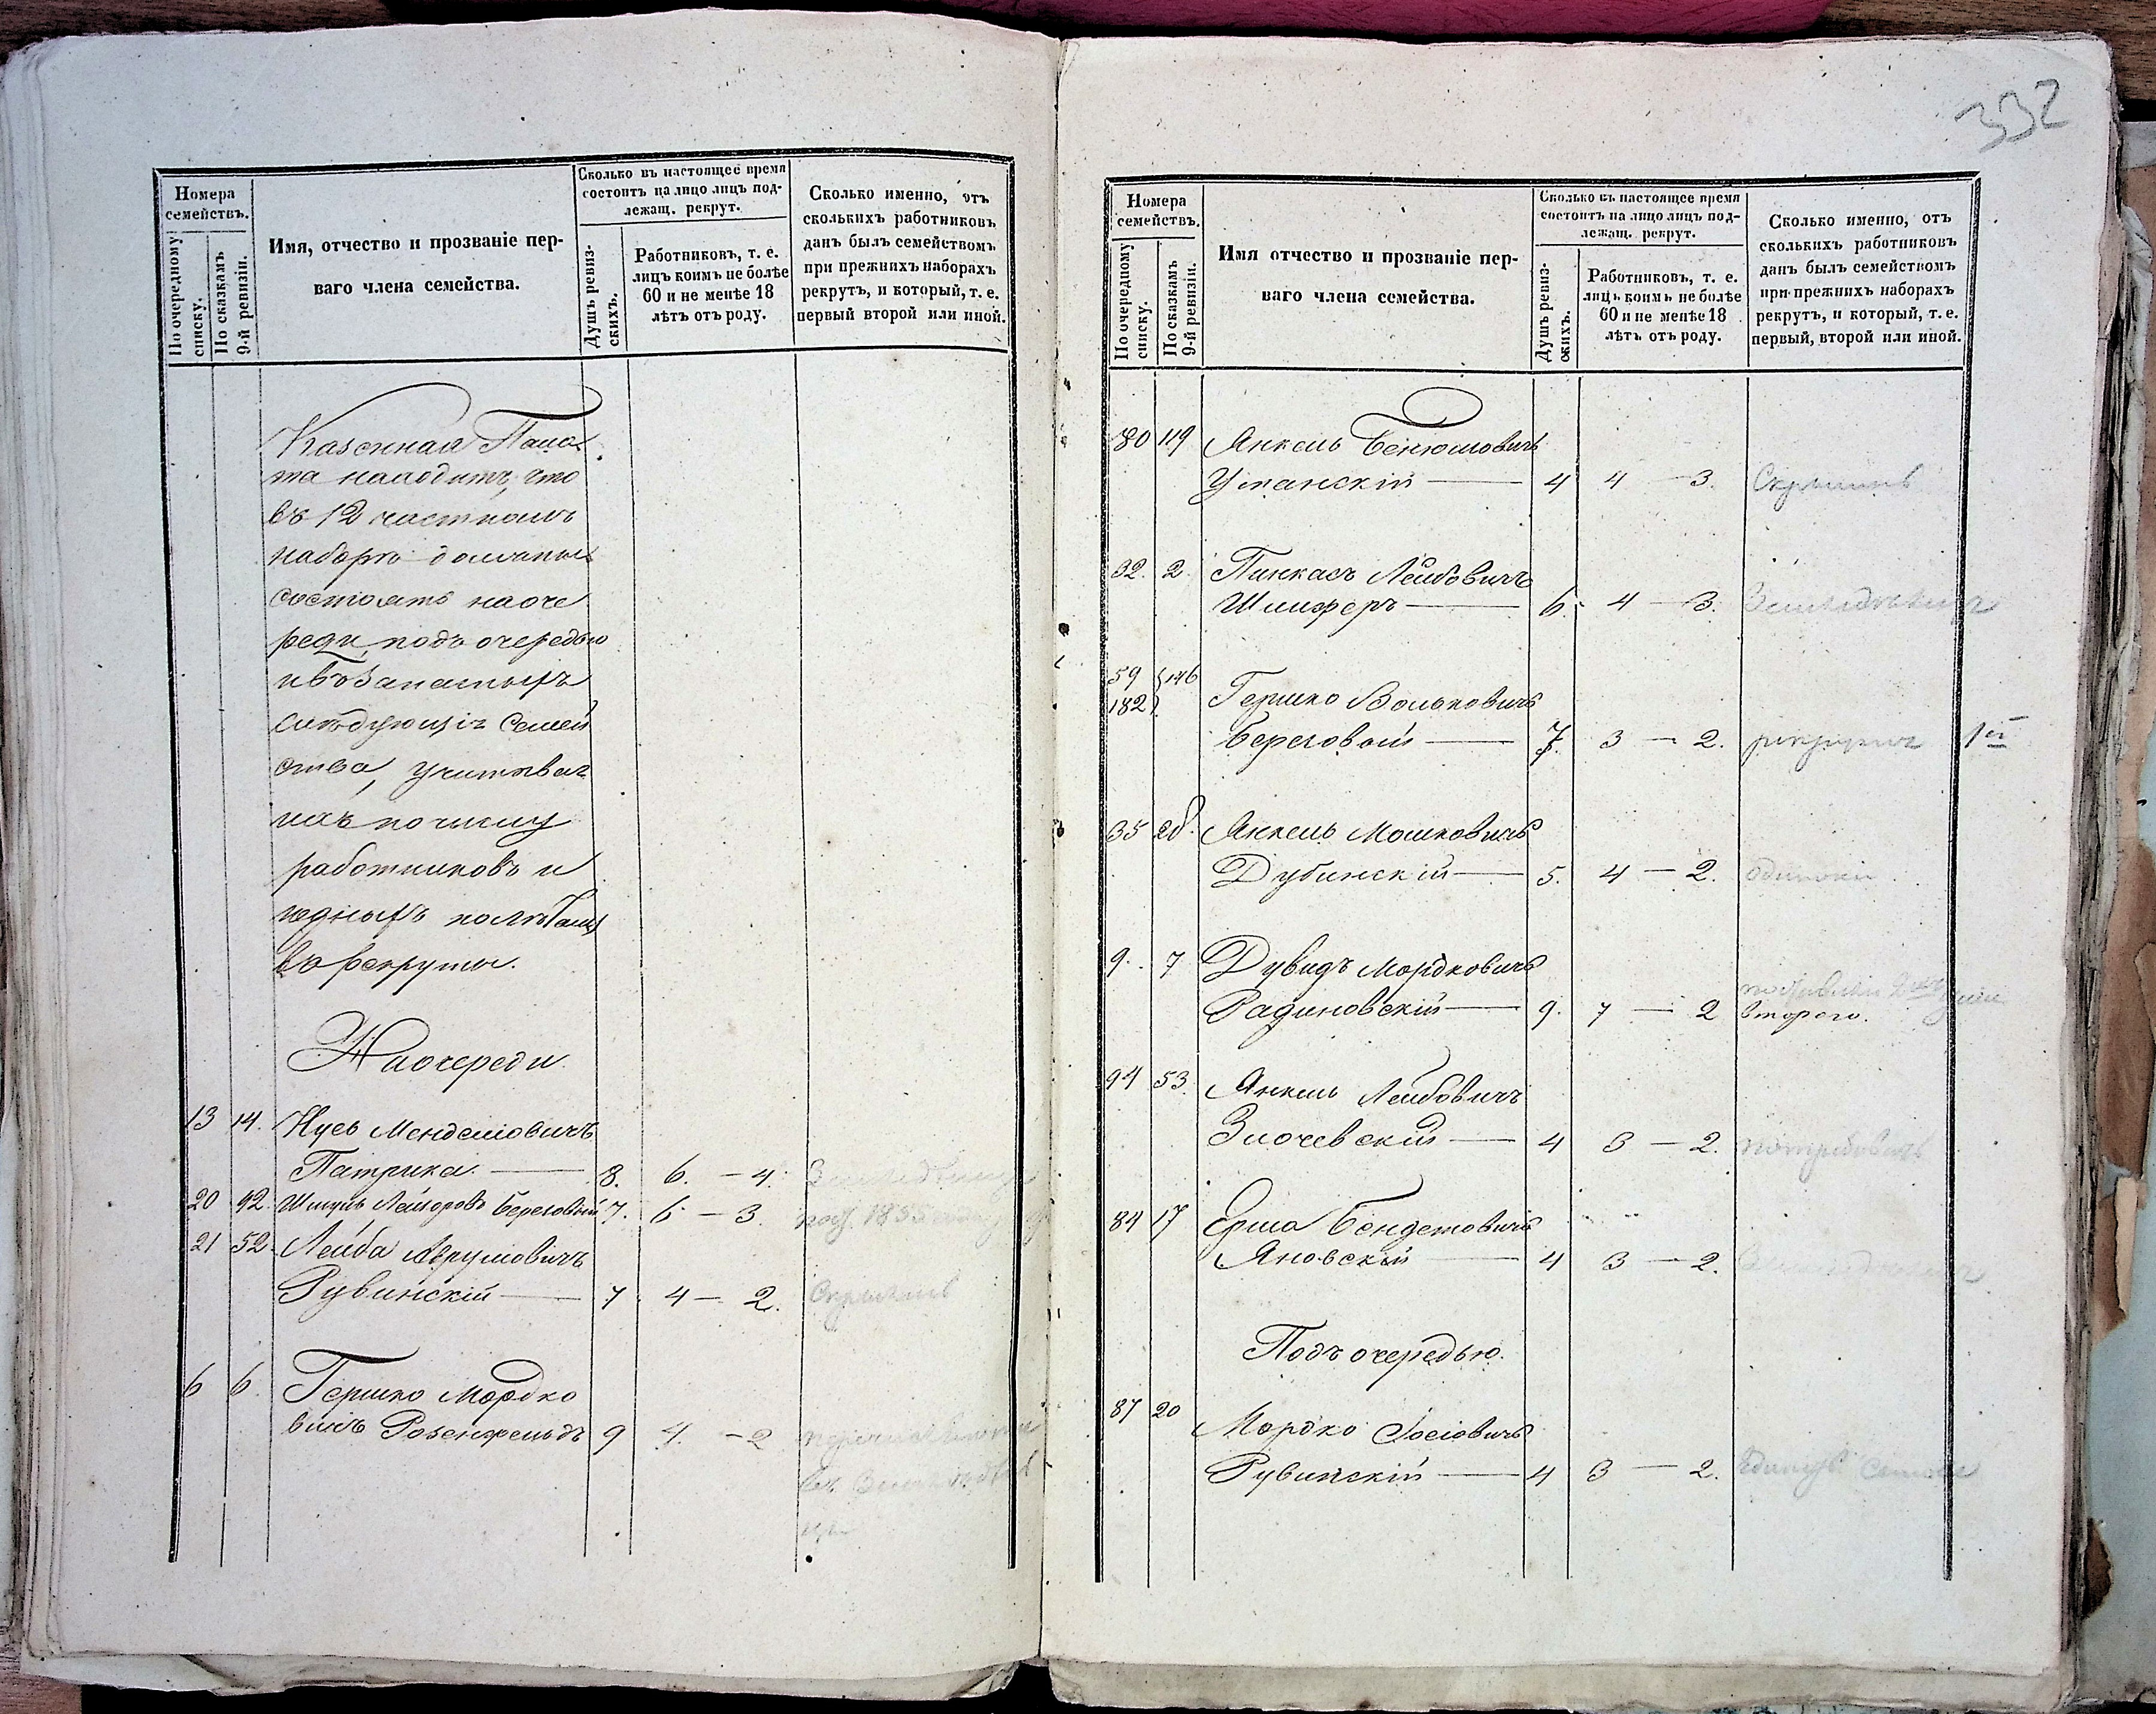 Номера
семействъ.
По очередному
списку.
По сказкамъ
9-й ревизіи.
Имя, отчество и прозваніе пер-
ваго члена семейства.
Сколько въ настоящее время
состоитъ на лицо лицъ под-
лежащ. рекрут.
Душъ ревиз-
скихъ.
Работниковъ, т. е.
лицъ коимъ не болѣе
60 и не менѣе 18
лѣтъ отъ роду.
Сколько именно, отъ
сколькихъ работниковъ
данъ былъ семействомъ
при прежнихъ наборахъ
рекрутъ, и который, т. е.
первый второй или иной.
Казенная Пала
та находитъ, что
въ 12 частномъ
наборѣ должны
состоять на оче
реди, подъ очередью
и въ запасныхъ
слѣдующія семей
ства, учитывая
ихъ по числу
работниковъ и
годныхъ по лѣтамъ
въ рекруты.
На очереди
13 14. Нусь Мендел[іовичъ]
Патрика. — 8. 6. — 4.
20 92. Шмуль Лейзоровъ Береговый 7. 6 — 3. 1855
21 52. Лейба Аврумовичъ
Рувинскій — 7 4 — 2. Скрылись
6 6. Гершко Мордко
вичъ Розенфельдъ 9 4. — 2
332
Номера
семействъ.
По очередному
списку.
По сказкамъ
9-й ревизіи.
Имя отчество и прозваніе пер-
ваго члена семейства.
Сколько въ настоящее время
состоитъ на лицо лицъ под-
лежащ. рекрут.
Душъ ревиз-
скихъ.
Работниковъ, т. е.
лицъ коимъ не болѣе
60 и не менѣе 18
лѣтъ отъ роду.
Сколько именно, отъ
сколькихъ работниковъ
данъ былъ семействомъ
при прежнихъ наборахъ
рекрутъ, и который, т. е.
первый, второй или иной.
80 119 Янкель Бенюмовичъ
Уманскій — 4 4 — 3. Скрылись
32. 2. Пинкасъ Лейбовичъ
Шлиферъ — 6. 4 — 3.
59 } 146
182 } Гершко Вольковичъ
Береговой — 7. 3 — 2. 1й
35 28. Янкель Мошковичъ
Дубинскій — 5. 4 — 2. одиноки
9. 7 Дувидъ Мордковичъ
Радиновскій — 9. 7 — 2 второго.
94 53. Янкель Лейбовичъ
Злочевскій — 4 3 — 2.
84 17 Ерша Бендетовичъ
Яновскій — 4 3 — 2.
Подъ очередью.
87 20 Мордко Іосіовичъ
Рувинскій — 4 3 — 2.